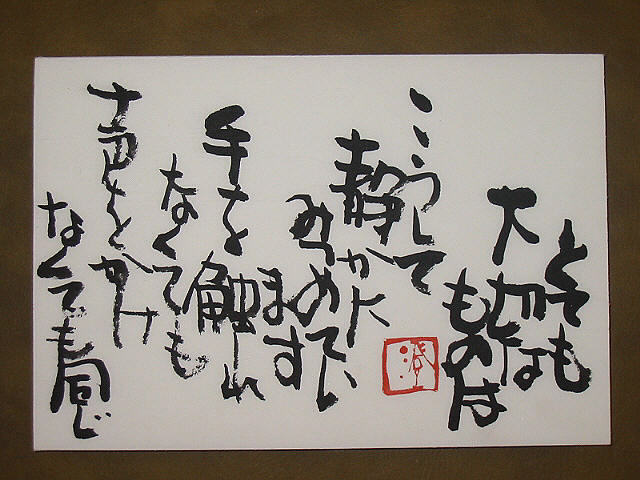 とても
大切な
ものは
こうして
静かに
みつめてい
ます
手を触れ
なくても
声をかけ
なくても
澄